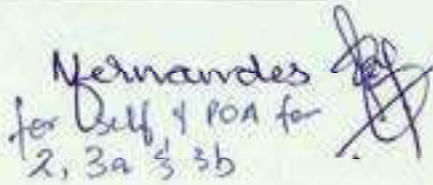 Mernandes
for self & POA for
2, 3a & 3b